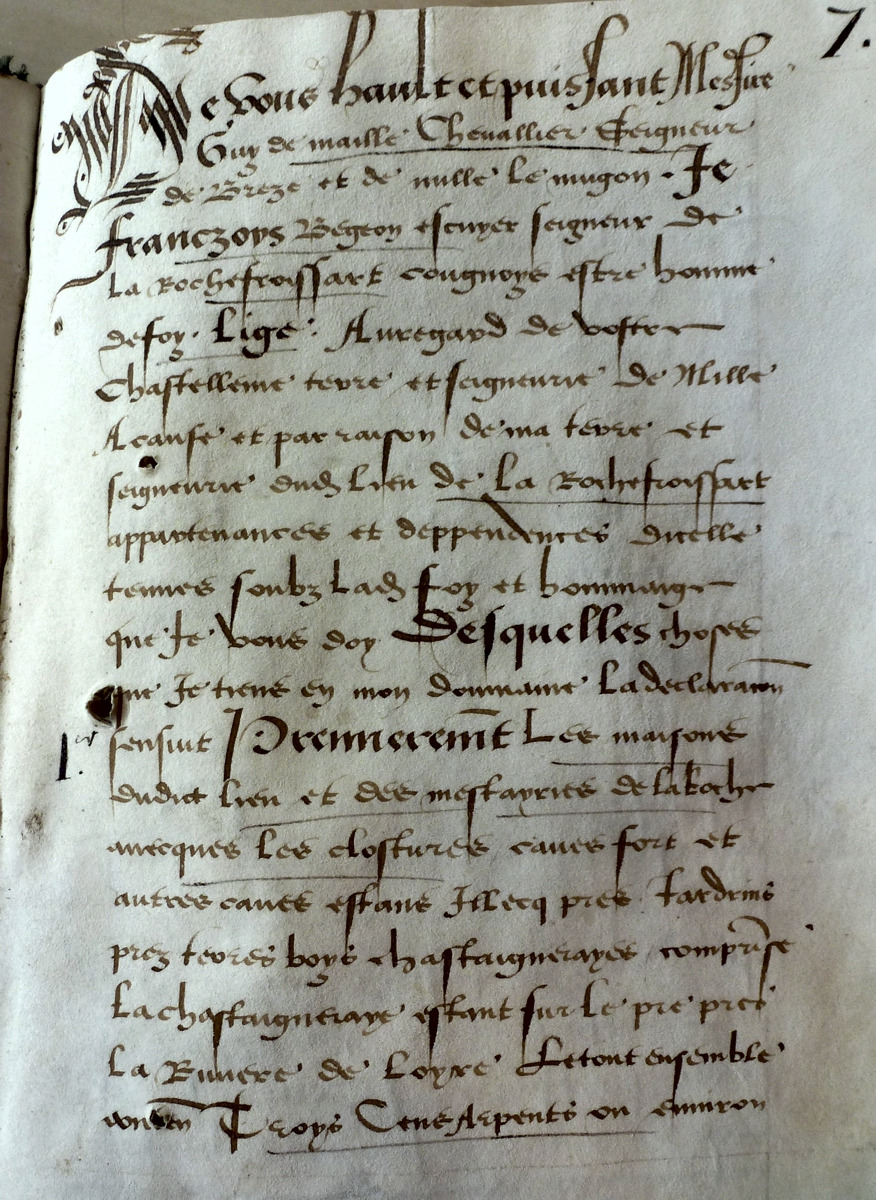 7.
De vous hault et puissant Messire
Guy de maille Chevallier Seigneur
de Breze et de mille le mugon. Je
franczoys Begeon escuyer seigneur de
la Rochefroissart congnoys estre homme
de foy. Lige. Au regard de vostre
Chastellenie terre et seigneurie de Mille
A cause et par raison de ma terre et
seigneurie dud lieu de La Rochefroissart
appartenances et deppendences dicelle
tenues soubz lad foy et hommaige
que Je vous doy Desquelles choses
que Je tiens en mon dommaine La declaracion
sensuit Premieremt Les maisons
1.er
dudict lieu et des mestayries de la Roche
avecques les clostures caves fort et
autres caves estans Illecq pres Jardrins
prez terres boys chastaignerayes comprise
La chastaigneraye estant sur le pre pres
La Riviere de Loyre Le tout ensemble
Troys Cens Arpents ou environ